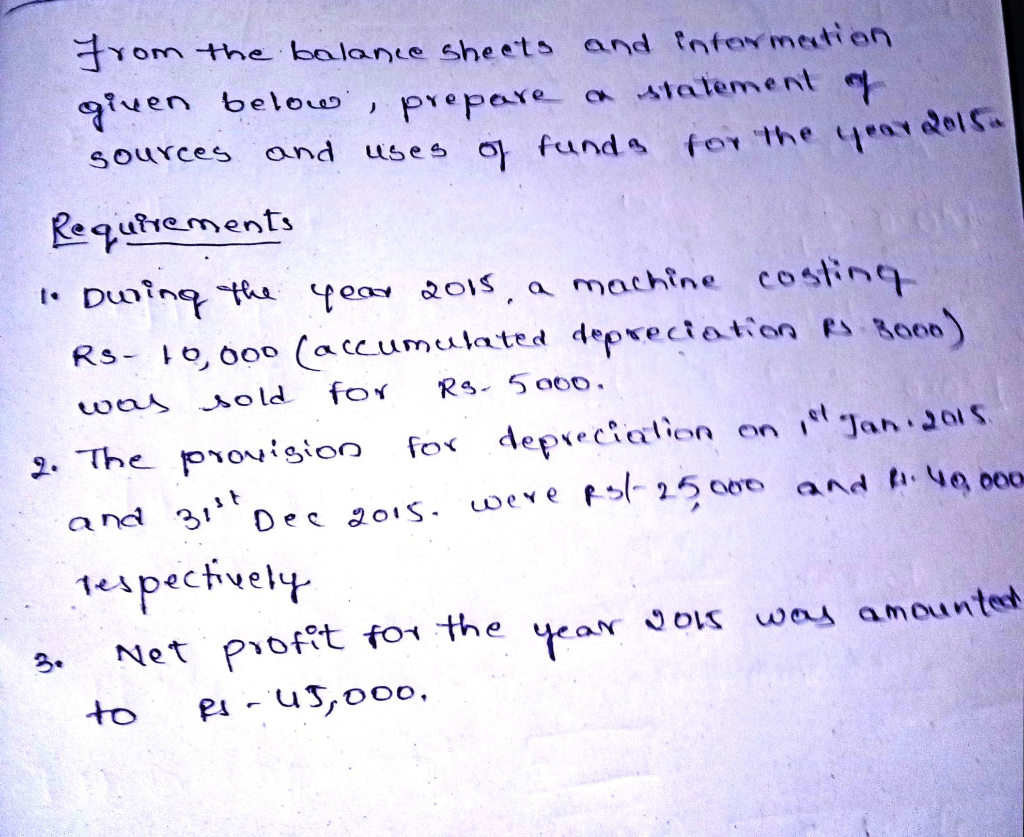 From the balance sheets and information
given below, prepare a statement of
sources and uses of funds for the year 2015.
Requirements
1. During the year 2015, a machine costing
Rs- 10,000 (accumulated depreciation Rs 3000)
was sold for Rs- 5000.
2. The provision for depreciation on 1st Jan. 2015.
and 31st Dec 2015. were Rs/- 25,000 and Rs. 40,000
respectively
3. Net profit for the year 2015 was amounted
to Rs - 45,000.